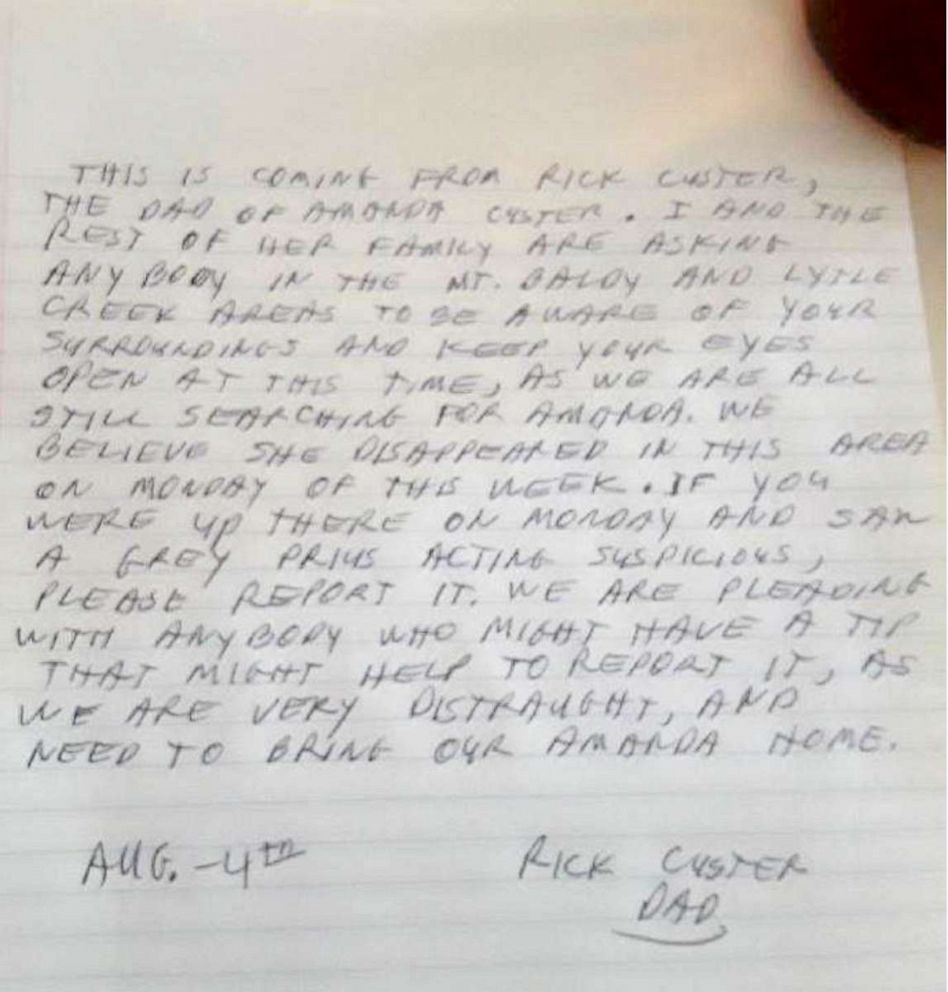 THIS IS COMING FROM RICK CUSTER,
THE DAD OF AMANDA CUSTER. I AND THE
REST OF HER FAMILY ARE ASKING
ANYBODY IN THE MT. BALDY AND LYTLE
CREEK AREAS TO BE AWARE OF YOUR
SURROUNDINGS AND KEEP YOUR EYES
OPEN AT THIS TIME, AS WE ARE ALL
STILL SEARCHING FOR AMANDA. WE
BELIEVE SHE DISAPPEARED IN THIS AREA
ON MONDAY OF THIS WEEK. IF YOU
WERE UP THERE ON MONDAY AND SAW
A GREY PRIUS ACTING SUSPICIOUS,
PLEASE REPORT IT. WE ARE PLEADING
WITH ANYBODY WHO MIGHT HAVE A TIP
THAT MIGHT HELP TO REPORT IT, AS
WE ARE VERY DISTRAUGHT, AND
NEED TO BRING OUR AMANDA HOME.
AUG. -4TH RICK CUSTER
DAD